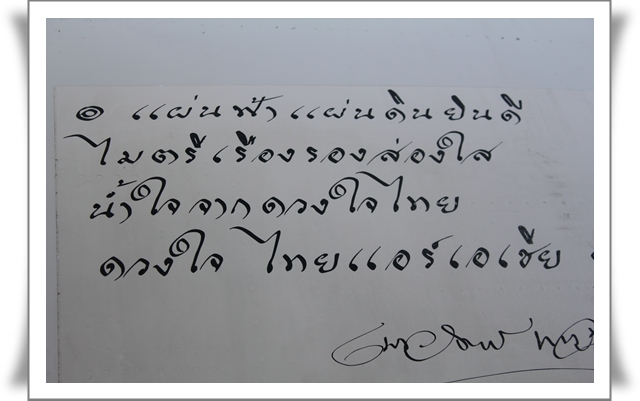 ๏ แผ่นฟ้า แผ่นดิน ยินดี
ไมตรี เรืองรองส่องใส
น้ำใจ จาก ดวงใจไทย
ดวงใจ ไทยแอร์เอเชีย